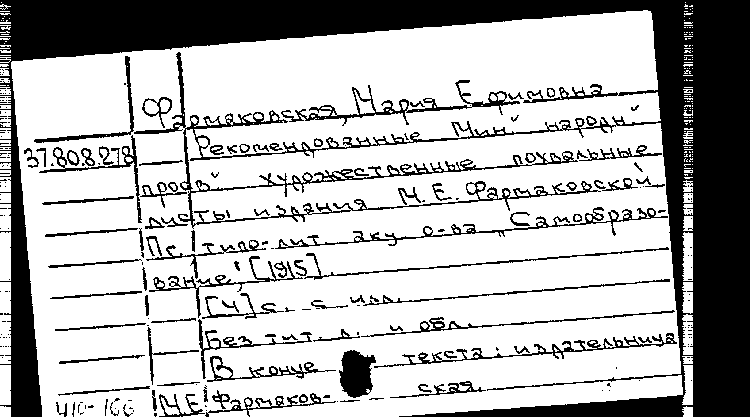 Фармаковская, Мария Ефимовна
37.808.278 Рекомендованные Мин" народн."
просв" художественные похвальные
листы издания М.Е. Фармаковской
Пг. типо-лит. акц. о-ва „Самообразо-
вание", [1915].
[4] с. с илл.
Без тит. л. и обл.
В конце текста: издательница
410-166 М.Е. Фармаков- ская.